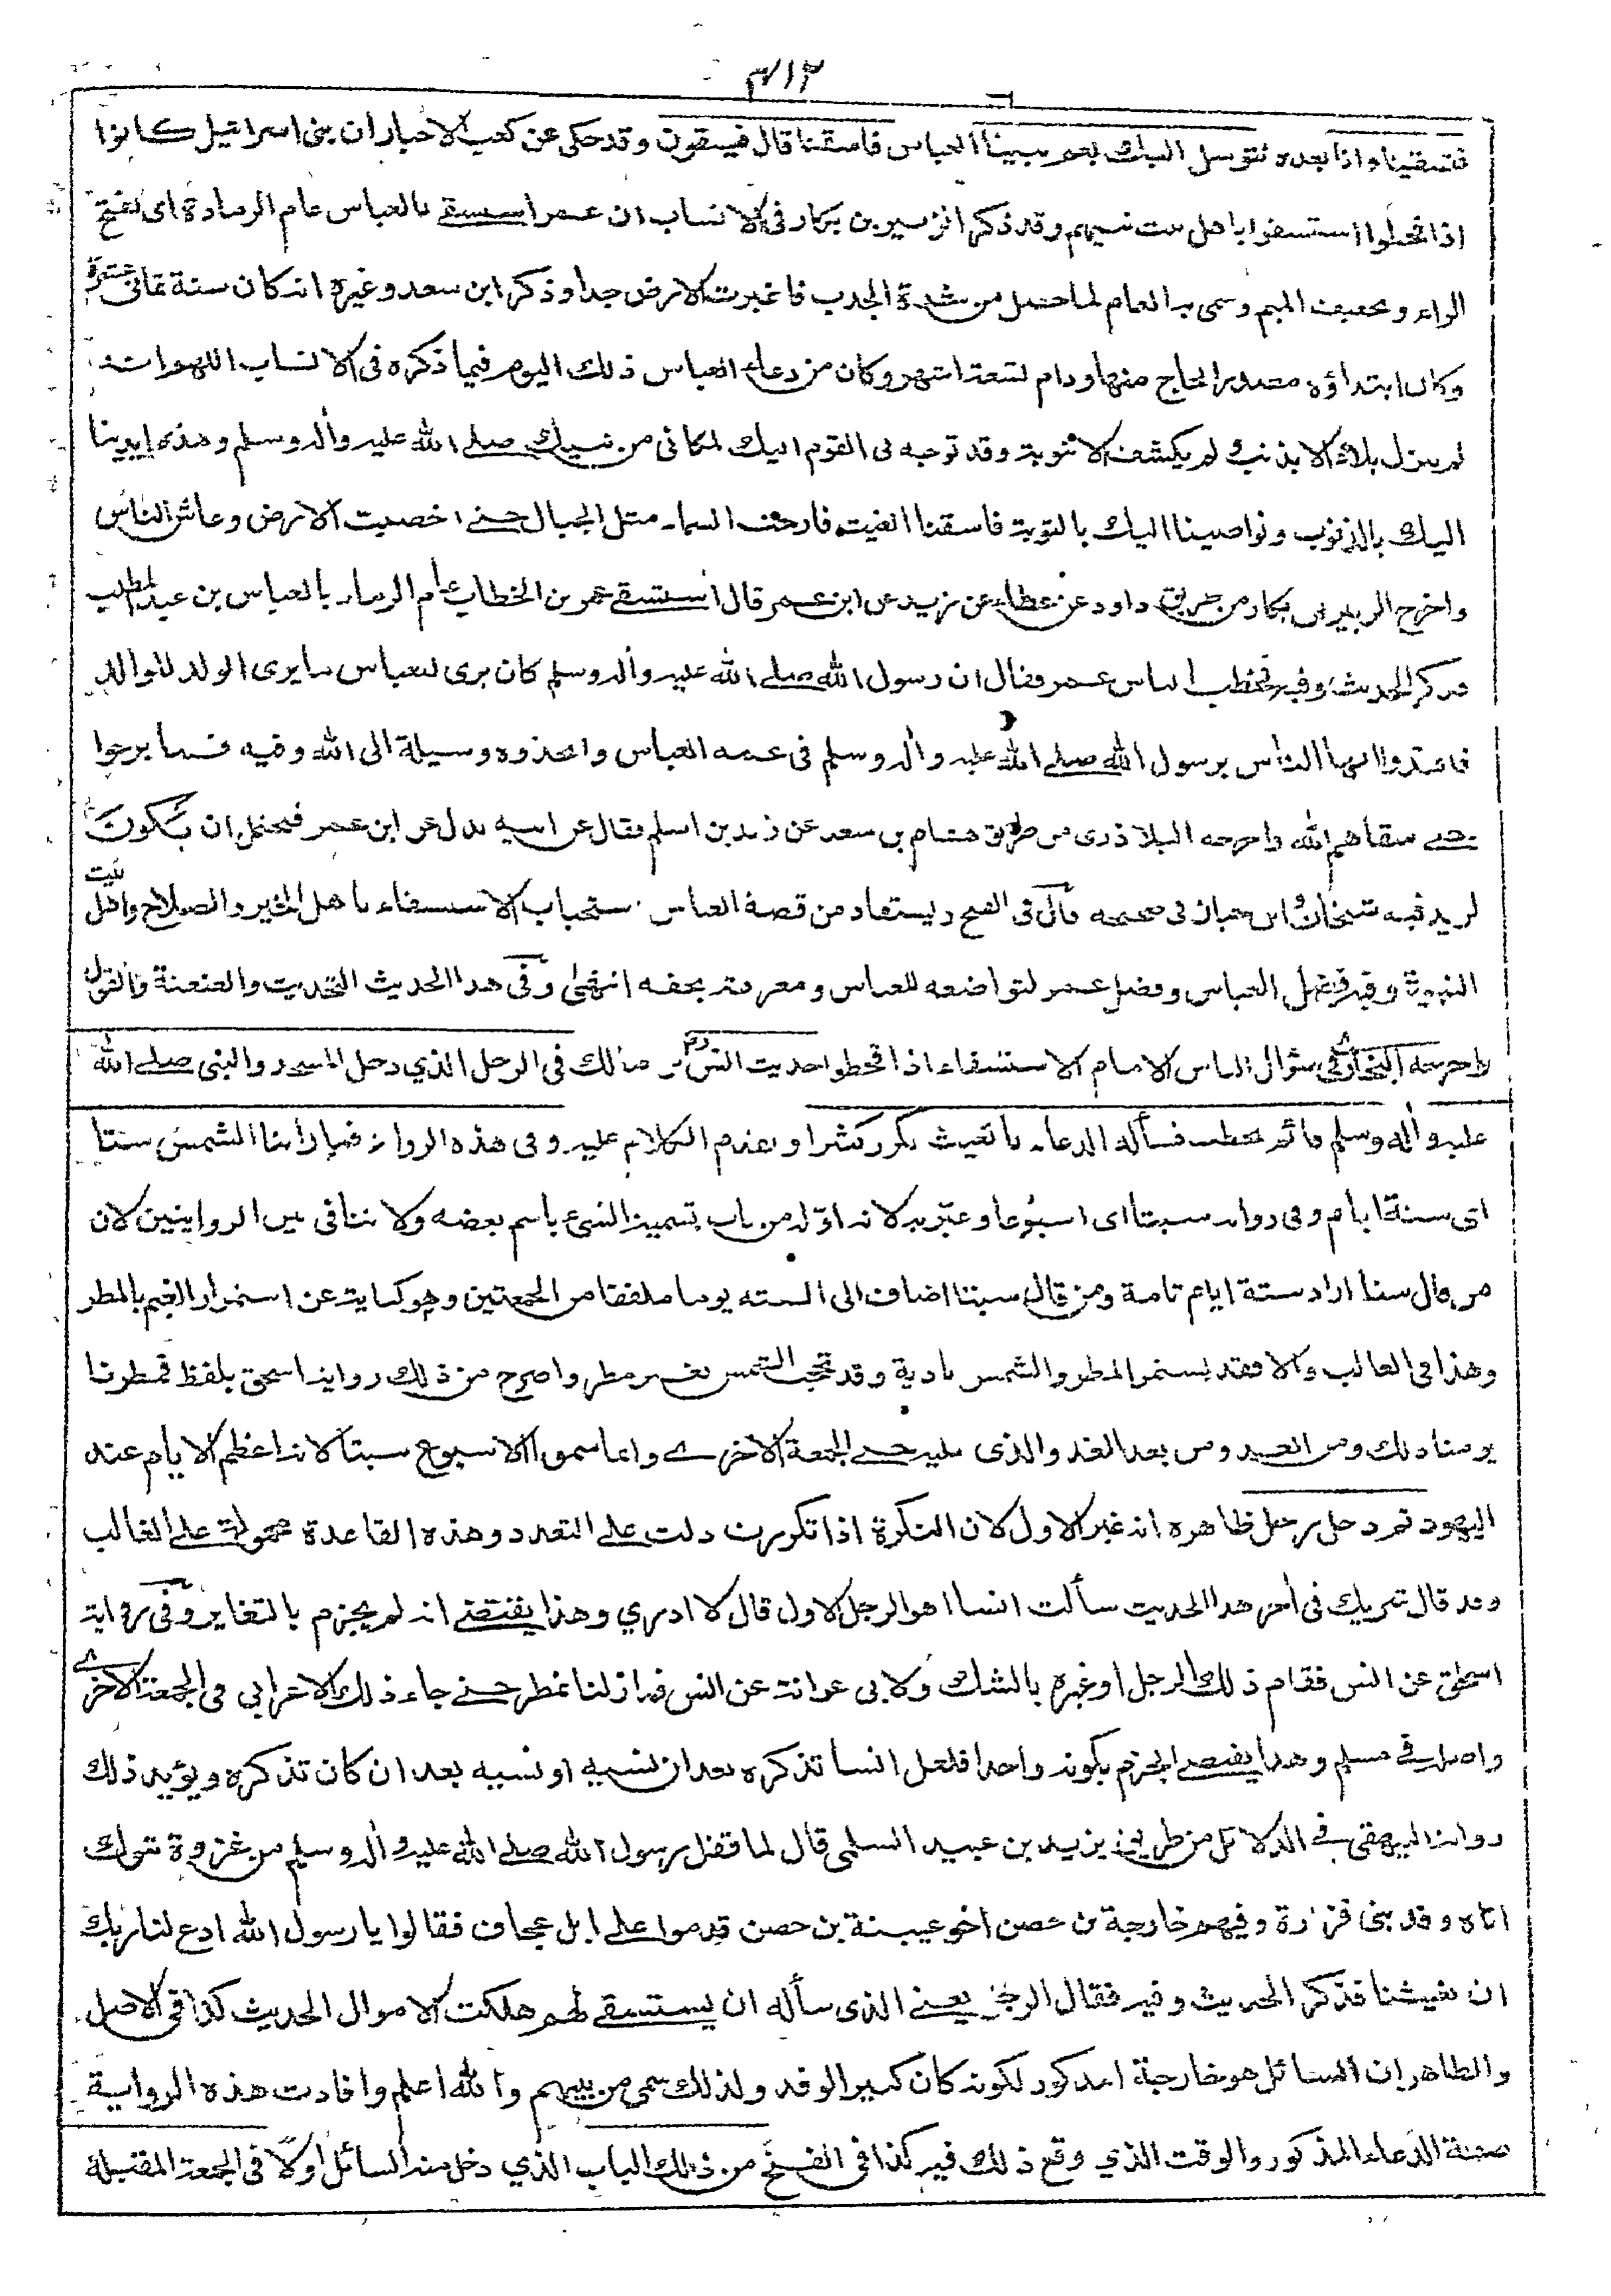 ٣١٢
فتسقينا وانا بعده نتوسل اليك بعم نبينا العباس فاسقنا قال فيسقون وقد حكى عن كعب الاحبار ان بنى اسرائيل كانوا
اذا قحطوا استسقوا باهل بيت نبيهم وقد ذكر الزبير بن بكار فى الانساب ان عمر استسقے بالعباس عام الرمادة اى بفتح
الراء وتخفيف الميم وسمى به العام لما حصل من شدة الجدب فاغبرت الارض جدا وذكر ابن سعد وغيره انه كان سنة ثمانى عشرة
وكان ابتداؤه مصدر الحاج منها ودام تسعة اشهر وكان من دعاء العباس ذلك اليوم فيما ذكره فى الانساب اللهم انه
لم ينزل بلاء الا بذنب ولم يكشف الا بتوبة وقد توجه بى القوم اليك لمكانى من نبيك صلے الله عليه وآله وسلم وهذه ايدينا
اليك بالذنوب ونواصينا اليك بالتوبة فاسقنا الغيث فارخت السماء مثل الجبال حتے اخصبت الارض وعاش الناس
واخرج الزبير بن بكار من طريق داود عن عطاء عن زيد عن ابن عمر قال استسقے عمر بن الخطاب عام الرماد بالعباس بن عبد المطلب
فذكر الحديث وفيه فخطب الناس عمر فقال ان رسول الله صلے الله عليه وآله وسلم كان يرى للعباس ما يرى الولد للوالد
فاقتدوا ايها الناس برسول الله صلے الله عليه وآله وسلم فى عمه العباس واتخذوه وسيلة الى الله وفيه فما برحوا
حتے سقاهم الله واخرجه البلاذرى من طريق هشام بن سعد عن زيد بن اسلم فقال عن ابيه بدل عن ابن عمر فيحتمل ان يكون
لزيد فيه شيخان وابن حبان فى صحيحه قال فى الفتح ويستفاد من قصة العباس استحباب الاستسقاء باهل الخير والصلاح واهل بيت
النبوة وفيه فضل العباس وفضل عمر لتواضعه للعباس ومعرفته بحقه انتهى وفى هذا الحديث التحديث والعنعنة والقول
واخرجه البخارى فى سؤال الناس الامام الاستسقاء اذا قحطوا حديث انس بن مالك فى الرجل الذي دخل المسجد والنبى صلے الله
عليه وآله وسلم قائم يخطب فسأله الدعاء بالغيث تكرر كثيرا وتقدم الكلام عليه وفى هذه الرواية فما راينا الشمس ستا
اى ستة ايام وفى رواية سبتا اى اسبوعا وعبر به لانه اوله من باب تسمية الشئ باسم بعضه ولا تنافى بين الروايتين لان
من قال ستا اراد ستة ايام تامة ومن قال سبتا اضاف الى الستة يوما ملفقا من الجمعتين وهو كناية عن استمرار الغيم بالمطر
وهذا فى الغالب والا فقد يستمر المطر والشمس بادية وقد تحجب الشمس بغير مطر واصرح من ذلك رواية اسحق بلفظ فمطرنا
يومنا ذلك ومن الغد ومن بعد الغد والذى يليه حتے الجمعة الاخرے وانما سموا الاسبوع سبتا لانه اعظم الايام عند
اليهود ثم دخل رجل ظاهره انه غير الاول لان النكرة اذا تكررت دلت علے التعدد وهذه القاعدة محمولة علے الغالب
وقد قال شريك فى آخر هذا الحديث سألت انسا اهو الرجل الاول قال لا ادري وهذا يقتضے انه لم يجزم بالتغاير وفى رواية
اسحاق عن انس فقام ذلك الرجل او غيره بالشك ولابى عوانة عن انس فما زلنا نمطر حتے جاء ذلك الاعرابي فى الجمعة الاخرے
واصله فے مسلم وهذا يقتضے الجزم بكونه واحدا فلعل انسا تذكره بعد ان نسيه او نسيه بعد ان كان تذكره ويؤيد ذلك
رواية البيهقى فے الدلائل من طريق يزيد بن عبيد السلمى قال لما قفل رسول الله صلے الله عليه وآله وسلم من غزوة تبوك
اتاه وفد بنى فزارة وفيهم خارجة بن حصن اخو عيينة بن حصن قدموا علے ابل عجاف فقالوا يا رسول الله ادع لنا ربك
ان يغيثنا فذكر الحديث وفيه فقال الرجل يعنے الذى سأله ان يستسقے لهم هلكت الاموال الحديث كذا فى الاصل
والظاهر ان السائل هو خارجة المذكور لكونه كان كبير الوفد ولذلك سمى من بينهم والله اعلم وافادت هذه الرواية
صفة الدعاء المذكور والوقت الذي وقع ذلك فيه كذا فى الفتح من ذلك الباب الذي دخل منه السائل اولا فى الجمعة المقتبلة